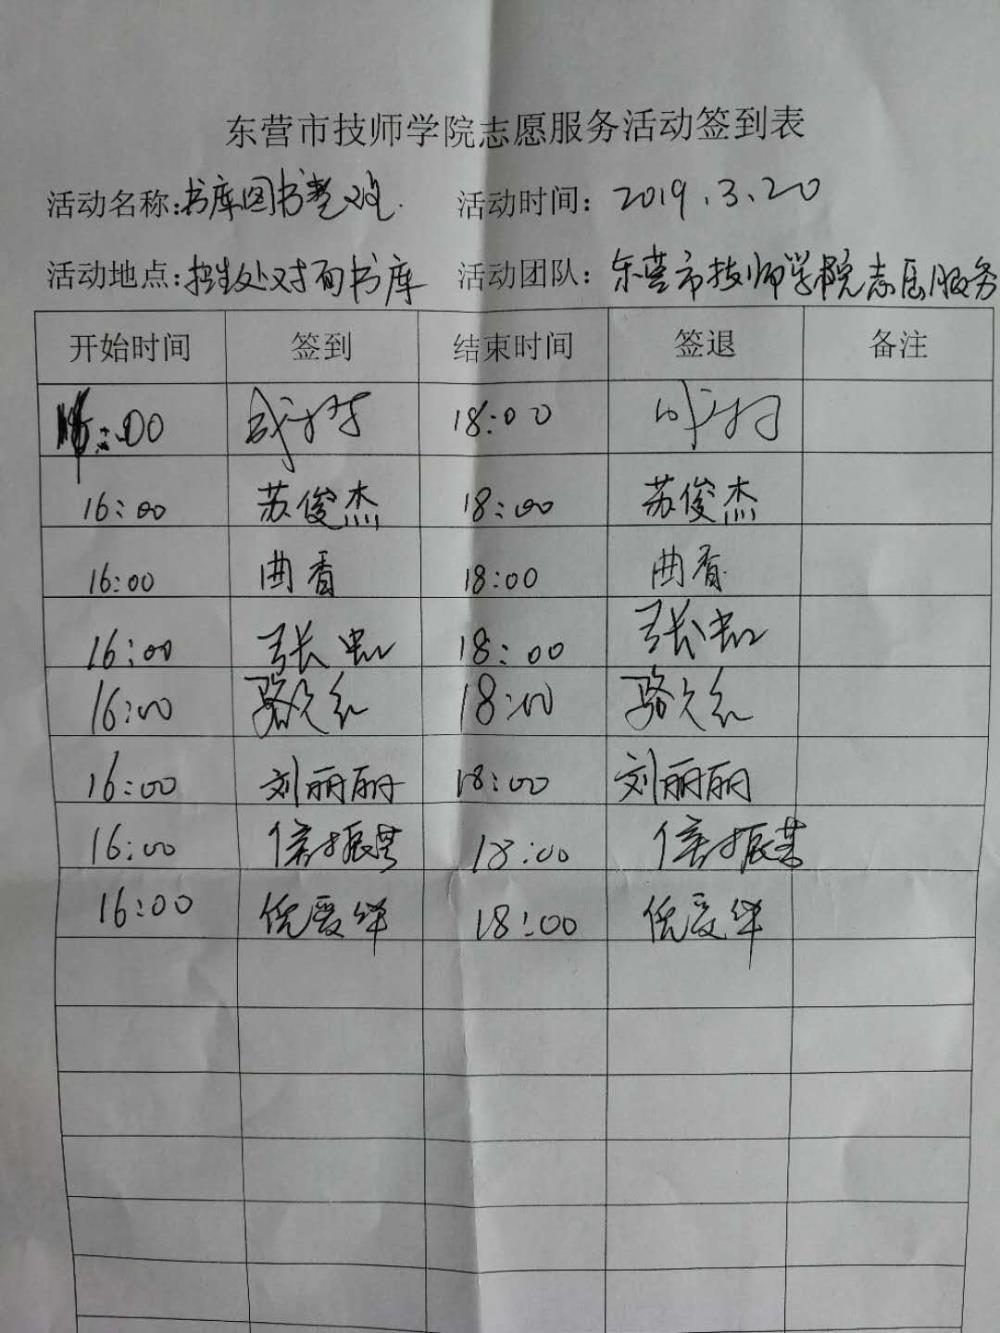 东营市技师学院志愿服务活动签到表
活动名称:书库图书整理 活动时间: 2019.3.20
活动地点:招生处对面书库 活动团队: 东营市技师学院志愿服务
开始时间 签到 结束时间 签退 备注
:00 18:00
16:00 苏俊杰 18:00 苏俊杰
16:00 曲香 18:00 曲香
16:00 张虹 18:00 张虹
16:00 骆久红 18:00 骆久红
16:00 刘丽丽 18:00 刘丽丽
16:00 信振芸 18:00 信振芸
16:00 爱华 18:00 爱华